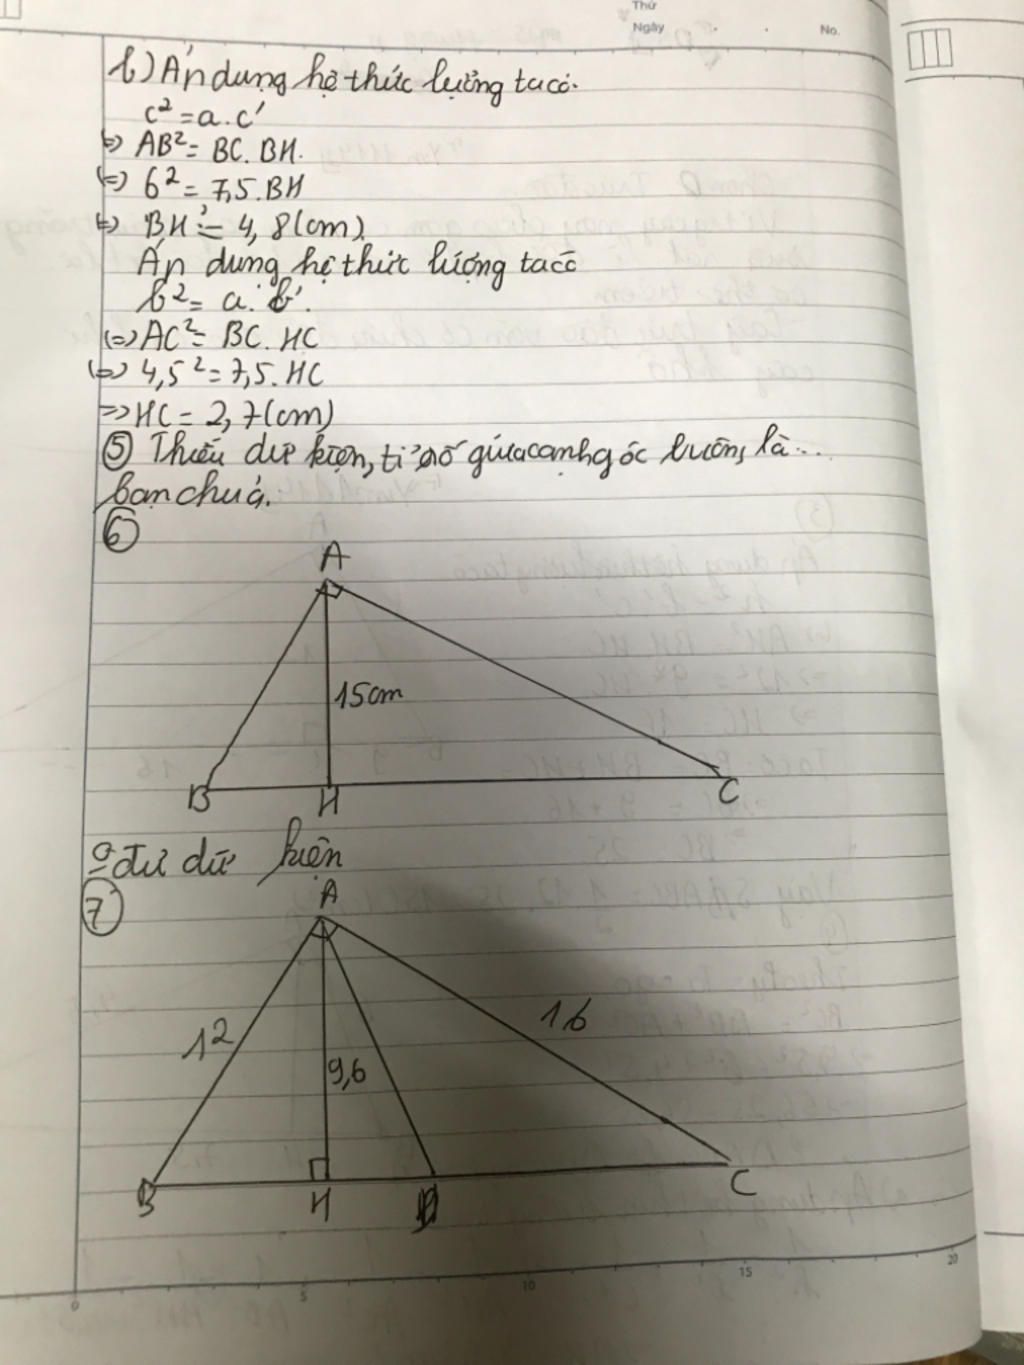 Thứ
Ngày
No.
b) Áp dụng hệ thức lượng ta có.
c² = a.c'
<=> AB² = BC. BH.
<=> 6² = 7,5.BH
<=> BH = 4,8(cm).
Áp dụng hệ thức lượng ta có
b² = a. b'.
<=> AC² = BC. HC
<=> 4,5² = 7,5. HC
=> HC = 2,7(cm)
⑤ Thiếu dữ kiện, tỉ số giữa cạnh góc vuông là...
bạn chưa.
⑥
A
15cm
B H C
đủ dữ kiện
⑦
A
12 16
9,6
B H D C
0 5 10 15 20